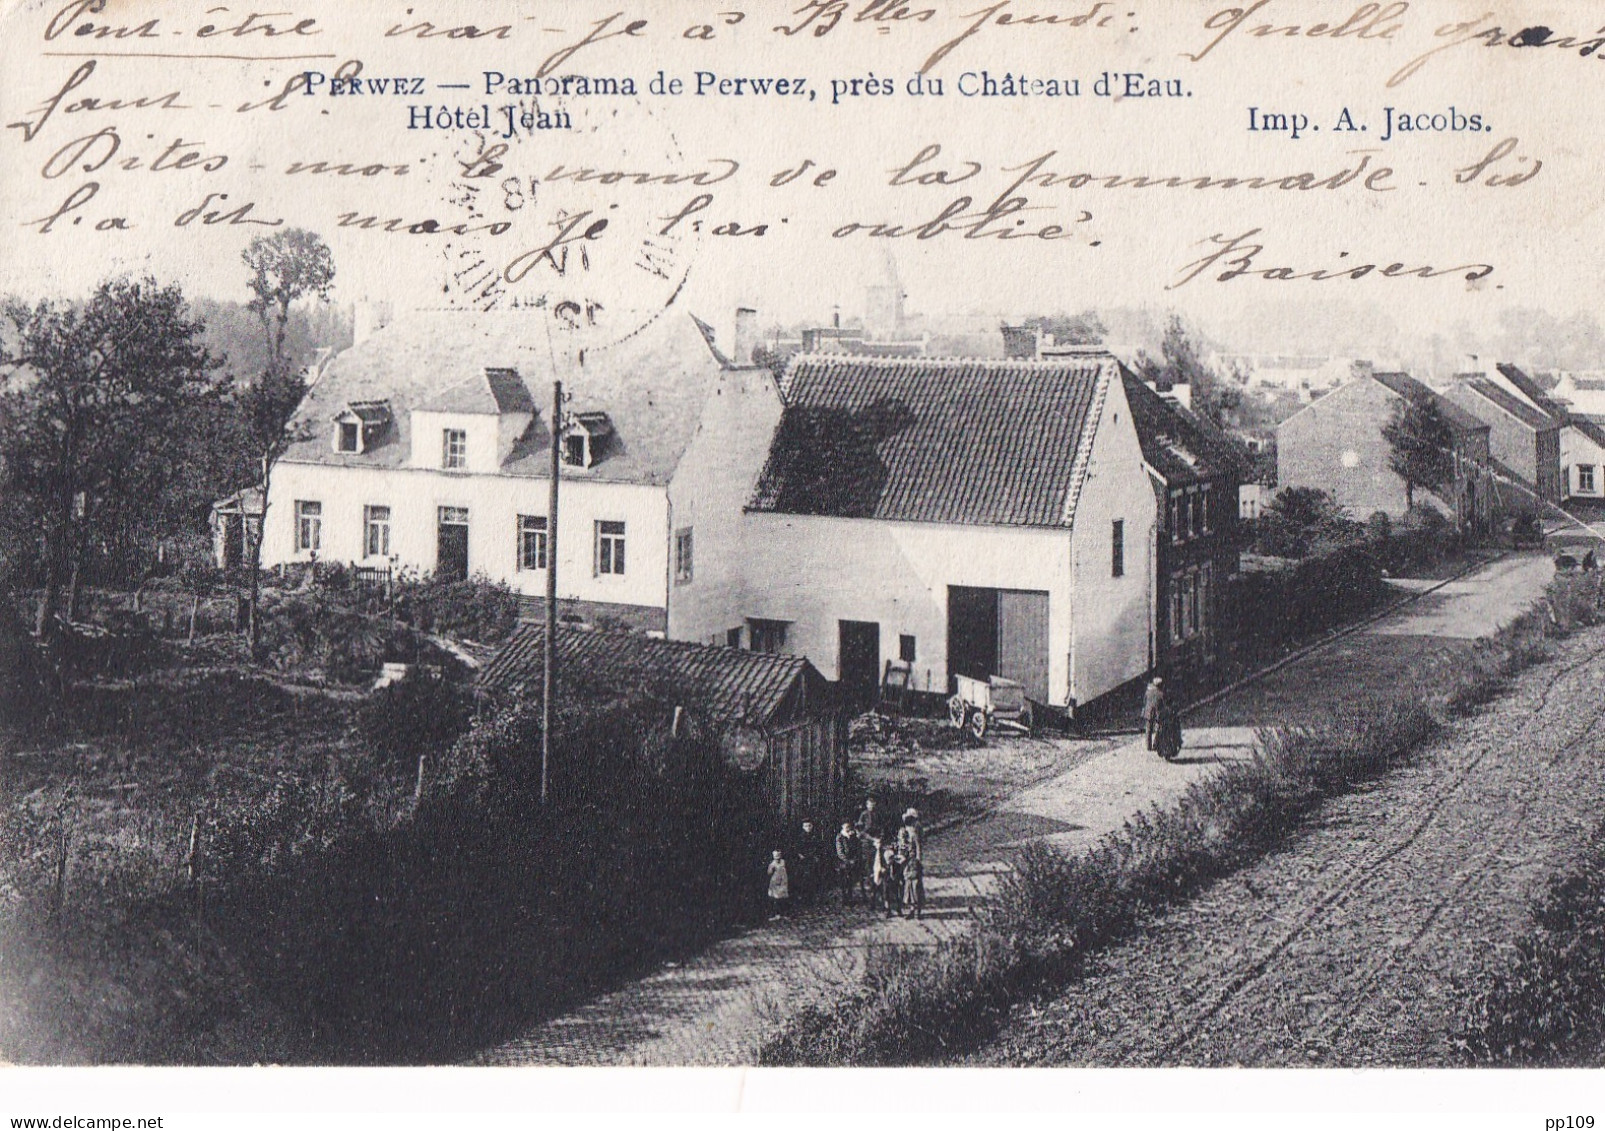 Peut-être irai-je à Blles jeudi. Quelle
faut-il.
PERWEZ — Panorama de Perwez, près du Château d'Eau.
Hôtel Jean Imp. A. Jacobs.
Dites-moi le nom de la pommade.
l'a dit mais je l'ai oublié.
Baisers
www.delcampe.net pp109